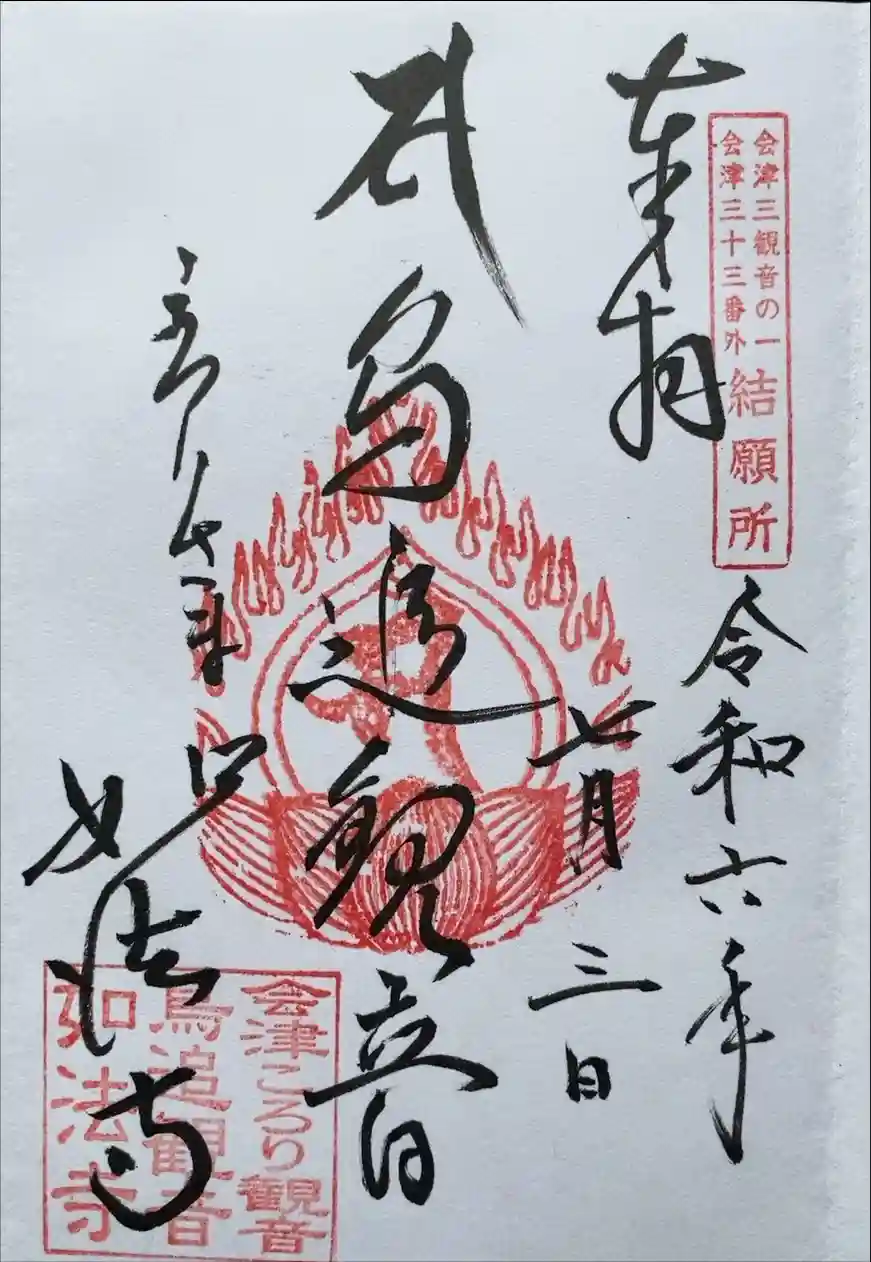 会津三観音の一
会津三十三番外
結願所
奉拝
令和六年
七月三日
鳥追観音
如法寺
会津ころり観音
鳥追観音
如法寺